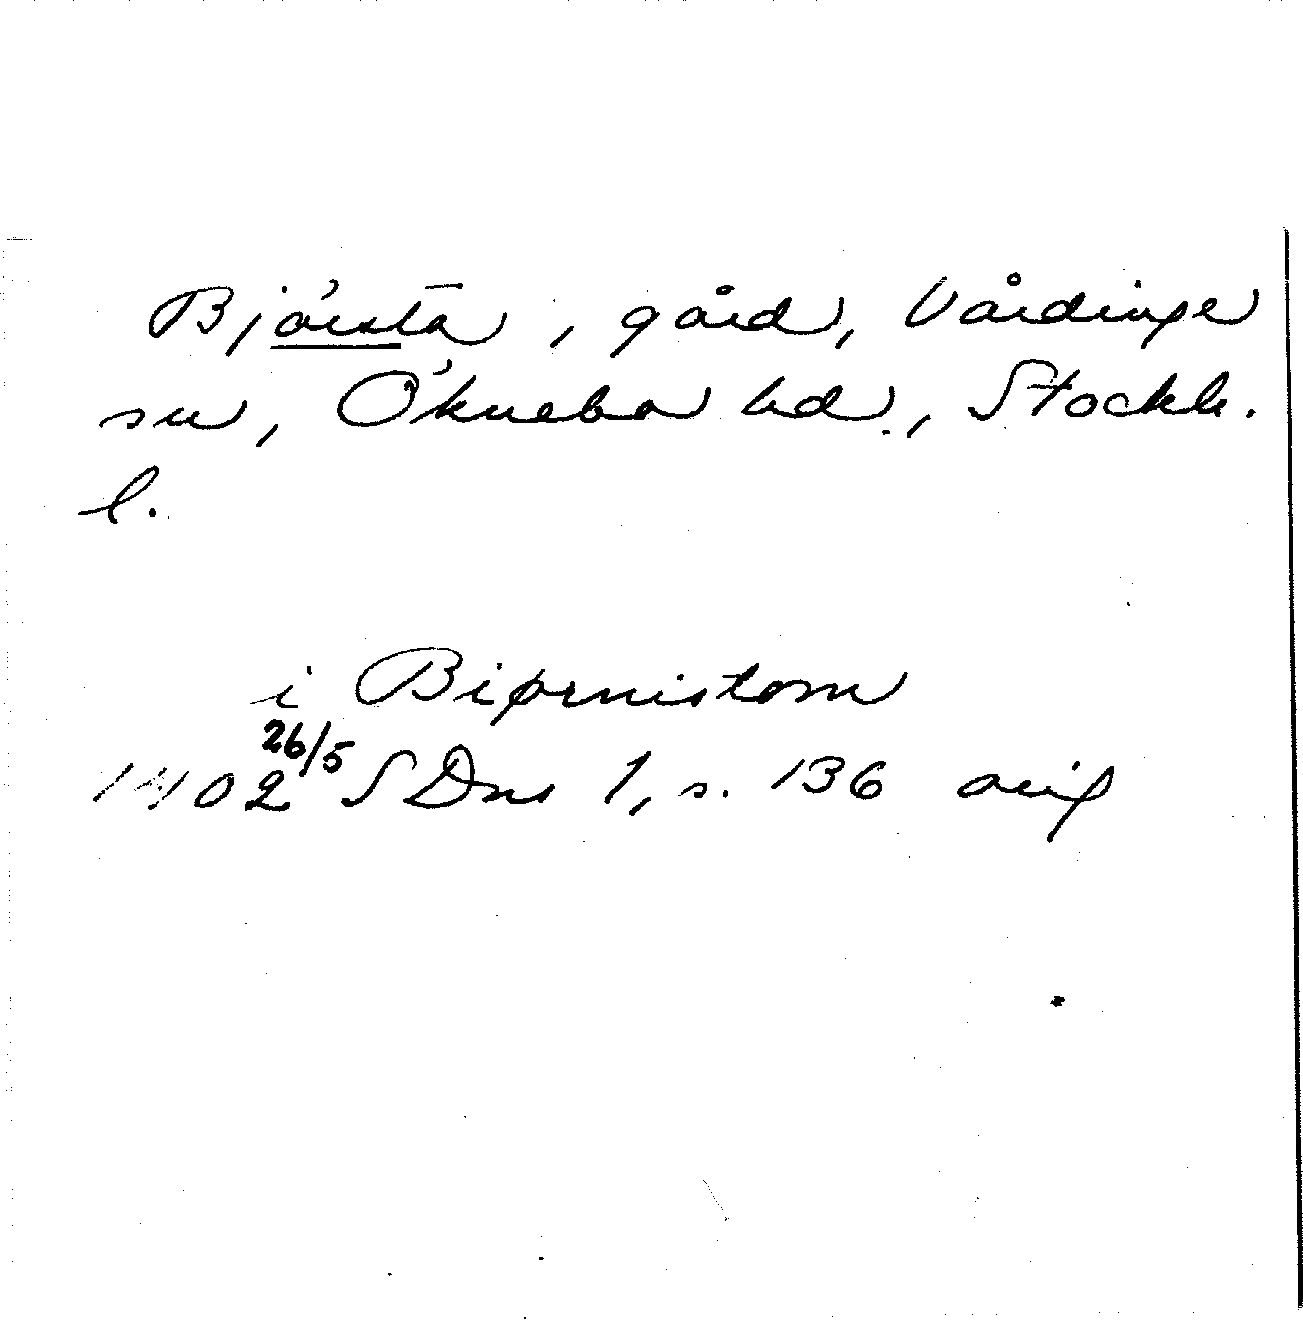 Björsta, gård, Vårdinge
sn, Öknebo hd, Stockh.
l.
i Biørnistom
1402 26/5 SDns 1, s. 136 orig